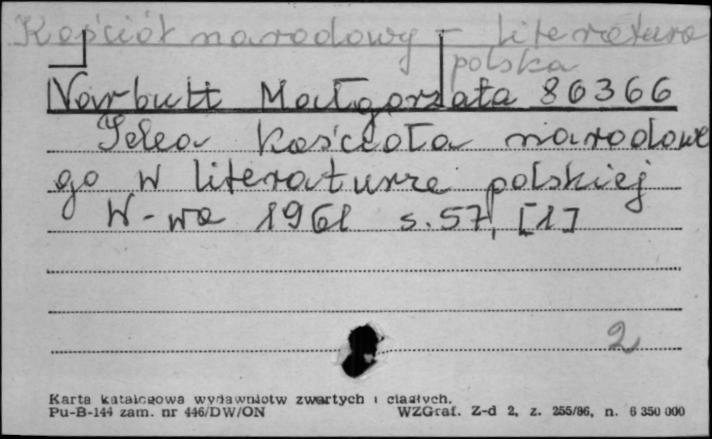 Kościół narodowy - literatura
polska
Narbutt Małgorzata 86366
Idea kościoła narodowe
go w literaturze polskiej
W-wa 1961 s. 57, [1]
2
Karta katalogowa wydawnictw zwartych i ciągłych.
Pu-B-144 zam. nr 446/DW/ON WZGraf. Z-d 2, z. 255/86, n. 6 350 000